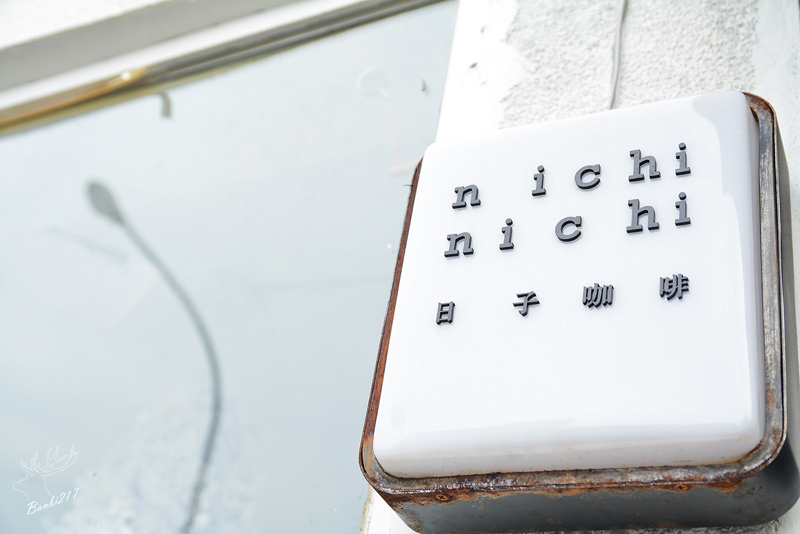 nichi
nichi
日子咖啡
Bambi217